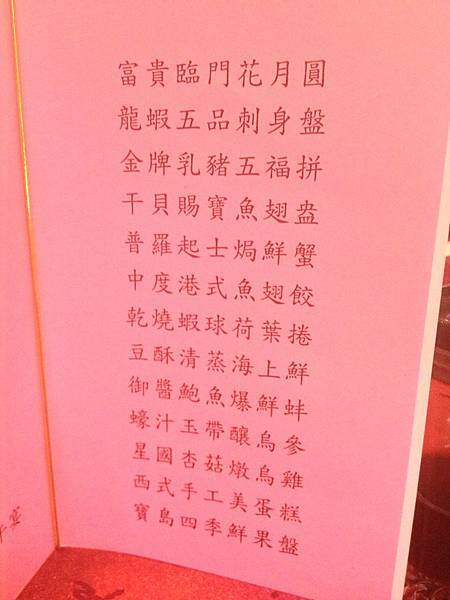 富貴臨門花月圓
龍蝦五品刺身盤
金牌乳豬五福拼
干貝賜寶魚翅盅
普羅起士焗鮮蟹
中度港式魚翅餃
乾燒蝦球荷葉捲
豆酥清蒸海上鮮
御醬鮑魚爆鮮蚌
蠔汁玉帶釀烏參
星國杏菇燉烏雞
西式手工美蛋糕
寶島四季鮮果盤
宴